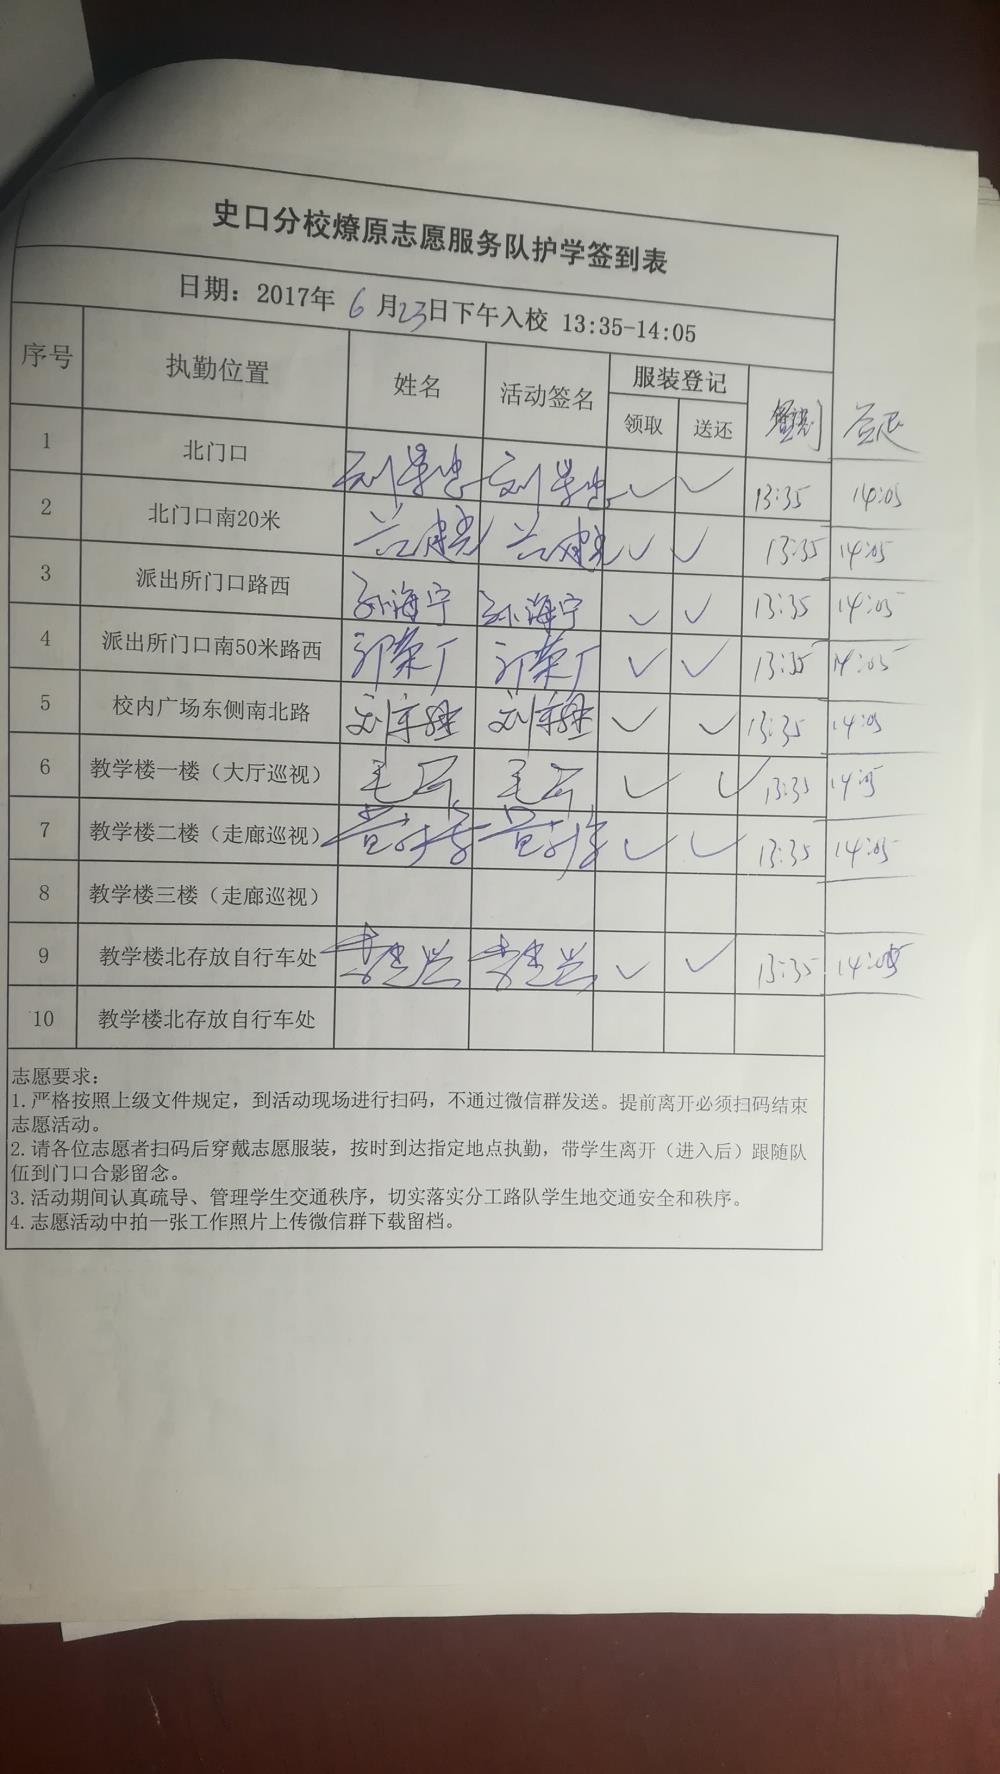 史口分校燎原志愿服务队护学签到表
日期：2017年 6 月23日下午入校 13:35-14:05
序号 执勤位置 姓名 活动签名 服装登记 签到 签退
领取 送还
1 北门口 ✓ ✓ 13:35 14:05
2 北门口南20米 ✓ ✓ 13:35 14:05
3 派出所门口路西 孙海宁 孙海宁 ✓ ✓ 13:35 14:05
4 派出所门口南50米路西 ✓ ✓ 13:35 14:05
5 校内广场东侧南北路 ✓ ✓ 13:35 14:05
6 教学楼一楼（大厅巡视） ✓ ✓ 13:35 14:05
7 教学楼二楼（走廊巡视） ✓ ✓ 13:35 14:05
8 教学楼三楼（走廊巡视）
9 教学楼北存放自行车处 ✓ ✓ 13:35 14:05
10 教学楼北存放自行车处
志愿要求：
1.严格按照上级文件规定，到活动现场进行扫码，不通过微信群发送。提前离开必须扫码结束
志愿活动。
2.请各位志愿者扫码后穿戴志愿服装，按时到达指定地点执勤，带学生离开（进入后）跟随队
伍到门口合影留念。
3.活动期间认真疏导、管理学生交通秩序，切实落实分工路队学生地交通安全和秩序。
4.志愿活动中拍一张工作照片上传微信群下载留档。